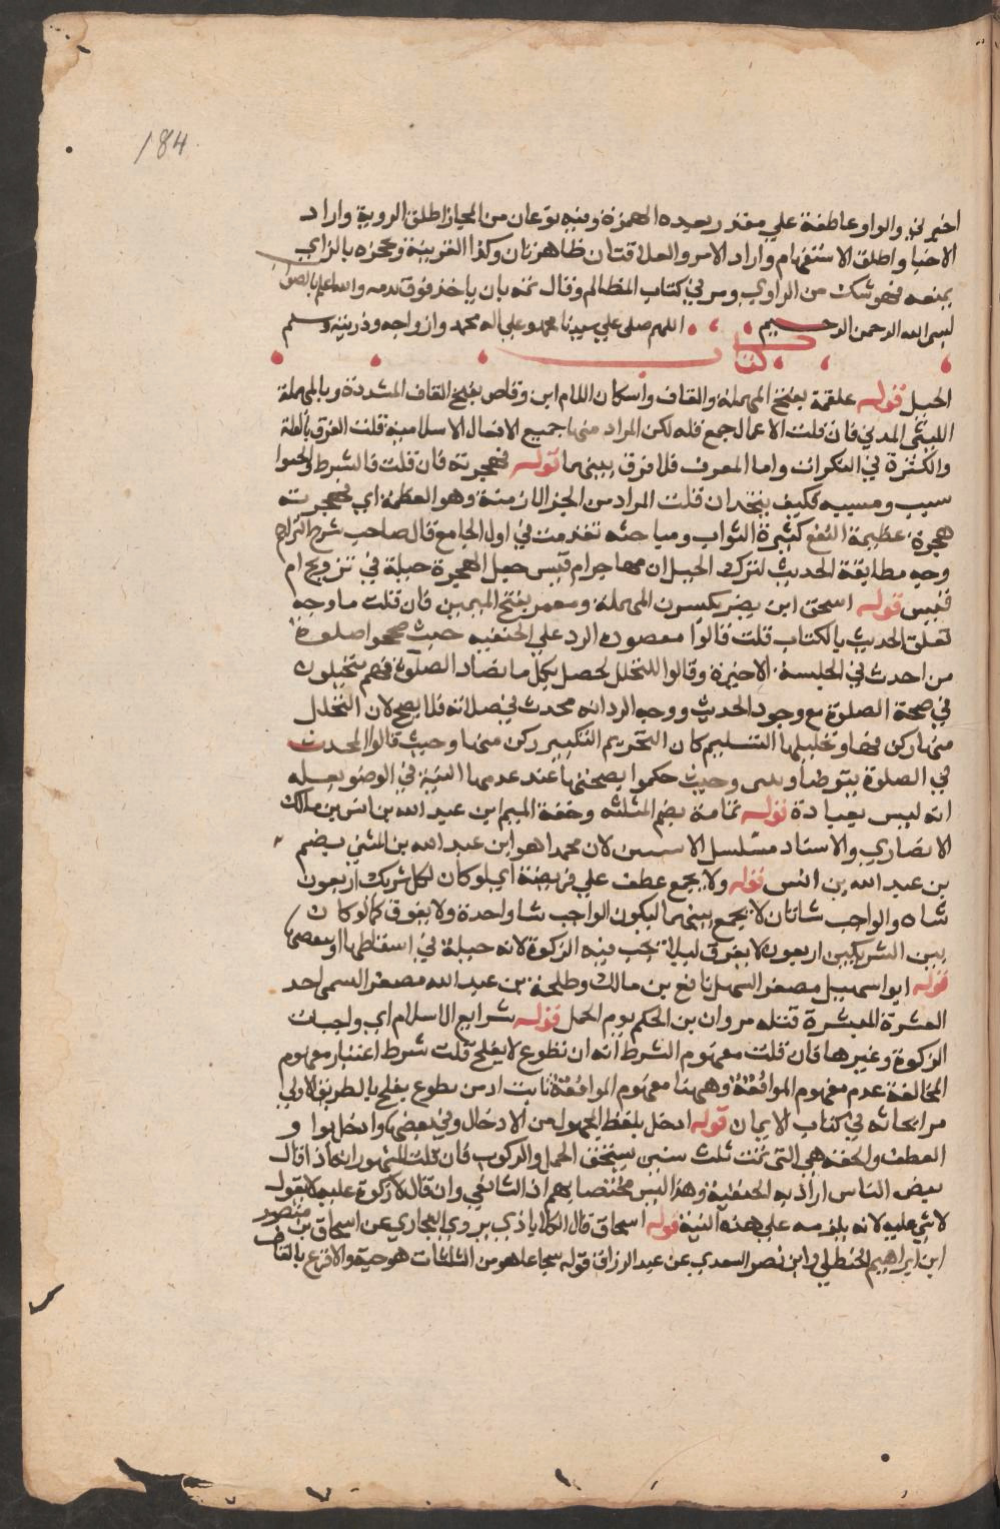 184
اخبرني والواو عاطفة علي مقدر بعده الهمزة وفيه نوعان من المجاز اطلق الروية واراد
الاخبار واطلق الاستفهام واراد الامر والعلاقتان ظاهرتان وكذا القرينة وتحجزه بالزاي
بمنعه فهو شك من الراوي ومر في كتاب المظالم وقال ثمه بان ياخذ فوق يده والله اعلم بالصواب
بسم الله الرحمن الرحيم اللهم صل علي سيدنا محمد وعلي اله محمد وازواجه وذريته وسلم
كتاب
الحيل قوله علقمة بفتح المهملة والقاف واسكان اللام ابن وقاص بفتح القاف المشددة وبالمهملة
الليثي المدني فان قلت الاعمال جمع قله لكن المراد منها جميع الافعال الاسلامية قلت الفرق بالقلة
والكثرة في النكرات واما المعرف فلا فرق بينهما قوله فهجرته فان قلت فالشرط والجزا
سبب ومسبب فكيف يتحدان قلت المراد من الجزا لازمه وهو العظمة اي فهجرته
هجرة عظيمة النفع كثيرة الثواب ومباحثه تقدمت في اول الجامع قال صاحب شرح التراجم
وجه مطابقة الحديث لترك الحيل ان مهاجر ام قيس جعل الهجرة حيلة في تزويج ام
قيس قوله اسحق ابن نصر بكسرن المهملة ومعمر بفتح الميمين فان قلت ما وجه
تعلق الحديث بالكتاب قلت قالوا مقصوده الرد علي الحنفيه حيث صححوا صلوة
من احدث في الجلسة الاخيرة وقالوا التحلل يحصل بكل ما يضاد الصلوة فهم يتحيلون
في صحة الصلوة مع وجود الحدث ووجه الرد انه محدث في صلاته فلا يصح لان التحلل
منها ركن فيها وتحليلها التسليم كما ان التحريم التكبير ركن منها وحيث قالوا المحدث
في الصلوة يتوضا ويبني وحيث حكموا بصحتها عند عدم النية في الوضو بعلة
انه ليس بعبادة قوله ثمامة بضم المثلثه وخفة الميم ابن عبد الله بن انس بن مالك
الانصاري والاسناد مسلسل لان محمدا هو ابن عبد الله بن المثني بضم
بن عبد الله بن انس قوله ولا يجمع عطف علي فريضة اي لو كان لكل شريك اربعون
شاة والواجب شاتان لا يجمع بينهما ليكون الواجب شاة واحدة ولا يفرق كما لو كان
بين الشريكين اربعون لا يفرق ليلا تجب فيه الزكوة لانه حيلة في اسقاطها او بعضها
قوله ابو سهيل مصغر السهل نافع بن مالك وطلحة بن عبيد الله مصغر السمي احد
العشرة المبشرة قتله مروان بن الحكم يوم الجمل قوله شرايع الاسلام اي واجبات
الزكوة وغيرها فان قلت مفهوم الشرط انه ان تطوع لا يفلح قلت شرط اعتبار مفهوم
المخالفة عدم مفهوم الموافقة وههنا مفهوم الموافقة ثابت اذ من تطوع يفلح بالطريق الاولي
مر ابحاثه في كتاب الايمان قوله ادخل بلفظ المجهول من الادخال وفي بعضها وادخل بواو
العطف والحقه هي التي تمت ثلث سنين يستحق الحمل والركوب فان قلت المشهور انه اذا قال
بعض الناس اراد به الحنفية وهذا ليس مختصا بهم اذ الشافعي وان قال لا زكوة عليه لا يقول
لا شي عليه لانه يلومه علي هذه النية قوله اسحاق قال الكلاباذي يروي البخاري عن اسحاق بن منصور
ابن ابراهيم الحنظلي وابن نصر السعدي عن عبد الرزاق قوله شجاعا هو من المثلثات هو حية والاقرع بالقاف